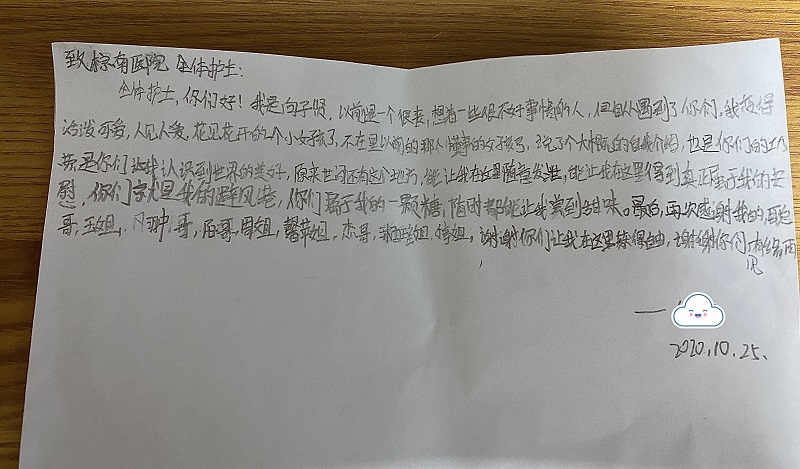 致棕南医院全体护士:
全体护士,你们好!我是向子贤,以前是一个很丧,想着一些很不好事情的人,但自从遇到了你们,我变得
活泼可爱,人见人爱,花见花开的一个小女孩了,不在是以前的那人懂事的女孩了,
是你们让我认识到世界的美好,原来世间还有这个地方,能让我在这里随意发泄,能让我在这里得到真正属于我的安
慰,你们就是我的避风港,你们属于我的一颗糖,随时都能让我尝到甜味。最后,再次感谢我的
哥,王姐,哥,周姐,馨苹姐,杰哥,谢谢你们让我在这里获得自由,谢谢你们,有缘再
见
2020.10.25.